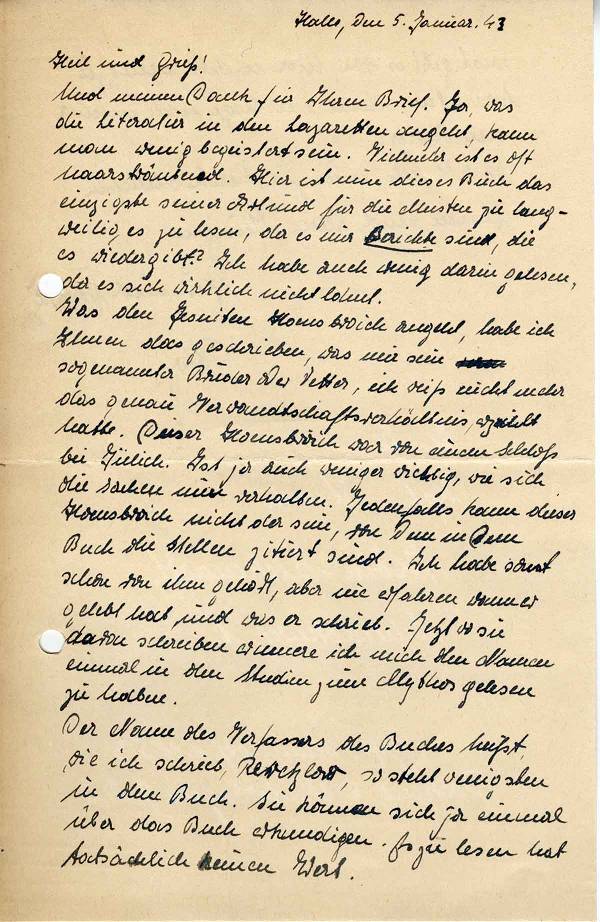 Halle, den 5. Januar. 43
Heil und Grüß!
Und meinen Dank für Ihren Brief. Ja, was
die Literatür in den Lazaretten angeht, kann
man wenig begeistert sein. Vielmehr ist es oft
haarsträubend. Hier ist nun dieses Buch das
einzigste seiner Art und für die Meisten zu lang-
weilig es zu lesen, da es nur Berichte sind, die
es wiedergibt. Ich habe auch wenig darin gelesen,
da es sich wirklich nicht lohnt.
Was den Jesuiten Hoensbroich angeht, habe ich
Ihnen das geschrieben, was mir sein
sogenannter Bruder oder Vetter, ich weiß nicht mehr
das genau Verwandtschaftsverhältnis, erzählt
hatte. Dieser Hoensbroich war von einem Schloß
bei Jülich. Ist ja auch weniger wichtig, wie sich
die Sachen nun verhalten. Jedenfalls kann dieser
Hoensbroich nicht der sein, von dem in dem
Buch die Stellen zitiert sind. Ich habe sonst
schon von ihm gehört, aber nie erfahren wann er
gelebt hat und was er schrieb. Jetzt wo sie
davon schreiben erinnere ich mich den Namen
einmal in den Studien zum Mythos gelesen
zu haben.
Der Name des Verfassers des Buches heißt,
wie ich schrieb, so steht wenigsten
in dem Buch. Sie können sich ja einmal
über das Buch erkundigen. Es zu lesen hat
tatsächlich keinen Wert.